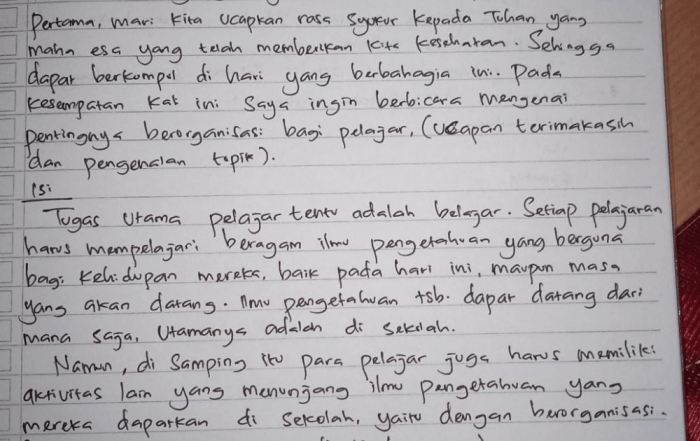 Pertama, mari kita ucapkan rasa syukur kepada Tuhan yang
maha esa yang telah memberikan kita kesehatan. Sehingga
dapat berkumpul di hari yang berbahagia ini. Pada
kesempatan kat ini saya ingin berbicara mengenai
pentingnya berorganisasi bagi pelajar, (ucapan terimakasih
dan pengenalan topik).
isi
Tugas utama pelajar tentu adalah belajar. Setiap pelajaran
harus mempelajari beragam ilmu pengetahuan yang berguna
bagi kehidupan mereka, baik pada hari ini, maupun masa
yang akan datang. Ilmu pengetahuan tsb. dapat datang dari
mana saja, utamanya adalah di sekolah.
Namun, di samping itu para pelajar juga harus memiliki
aktivitas lain yang menunjang ilmu pengetahuan yang
mereka dapatkan di sekolah, yaitu dengan berorganisasi.